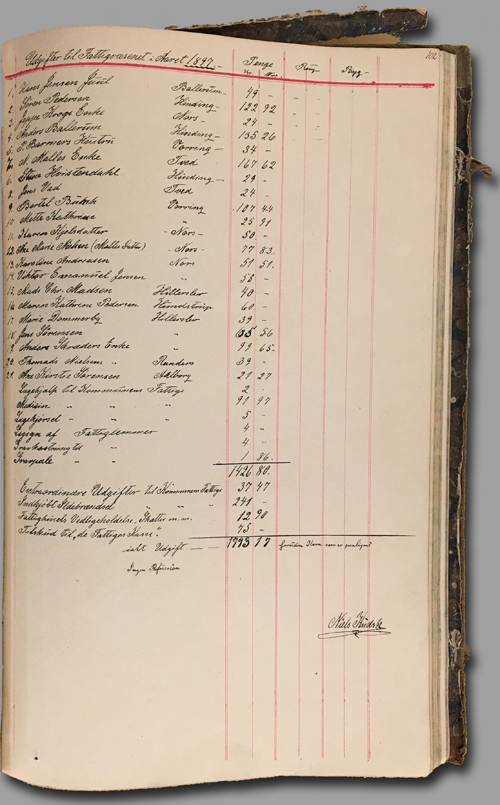 102
Udgifter til Fattigvæsenet i Aaret 1897. Penge Rug Byg
Kr. Øre
1. Hans Jensen Juul Ballerum 49 -
2. Søren Pedersen Hinding 122 92
3. Jeppe Krogs Enke Nors 24 -
4. Anders Ballerum Hinding 135 26
5. P. Barmers Vorring 34 -
N. Malles Enke Tved 167 62
Hvistendahl Hinding 29 -
Jens Vad Tved 24 -
9. Bertel Vorring 107 44
10. Mette Kathrine " 25 91
11. Karen Kjelsdatter Nors 50 -
12. Ane Marie (Malles Datter) Nors 77 83
13. Karoline Andreasen Nors 51 51
14. Viktor Emanuel Jensen 55 -
15. Mads Chr. Madsen Hillerslev 40 -
16. Maren Kathrine Pedersen Kimdstrup 60 -
17. Marie Dommerby Hillerslev 39 -
18. Jens Sørensen " 65 56
19. Anders Skræders Enke " 99 65
20. Thomads Nielsen " Randers 89 -
21. Ane Kirstine Sørensen Aalborg 21 27
Lægehjælp til Kommunens Fattige 2 -
Medisin " " " 91 97
Lægekjørsel " " 5 -
af Fattiglemmer 4 -
" " 4 -
" " 1 86
1426 80
Extraordinære Udgifter til Kommunens Fattige 37 47
Indkjøbt Ildebrændsel " " 241 -
Fattighusets Vedligeholdelse, Skatter m.m. 12 90
Tilskud til de Fattiges Kasse 75 -
ialt Udgift 1793 17
Ingen Refusion
Niels